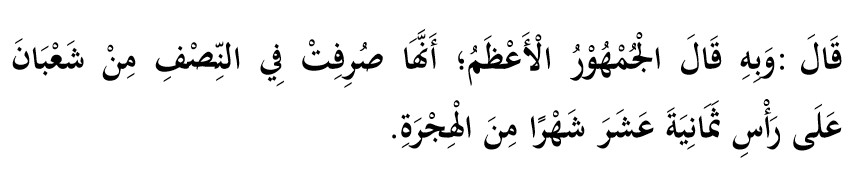 قَالَ :وَبِهِ قَالَ الْجُمْهُوْرُ الْأَعْظَمُ؛ أَنَّهَا صُرِفِتْ فِي النِّصْفِ مِنْ شَعْبَانَ
عَلَى رَأْسِ ثَمَانِيَةَ عَشَرَ شَهْرًا مِنَ الْهِجْرَةِ.